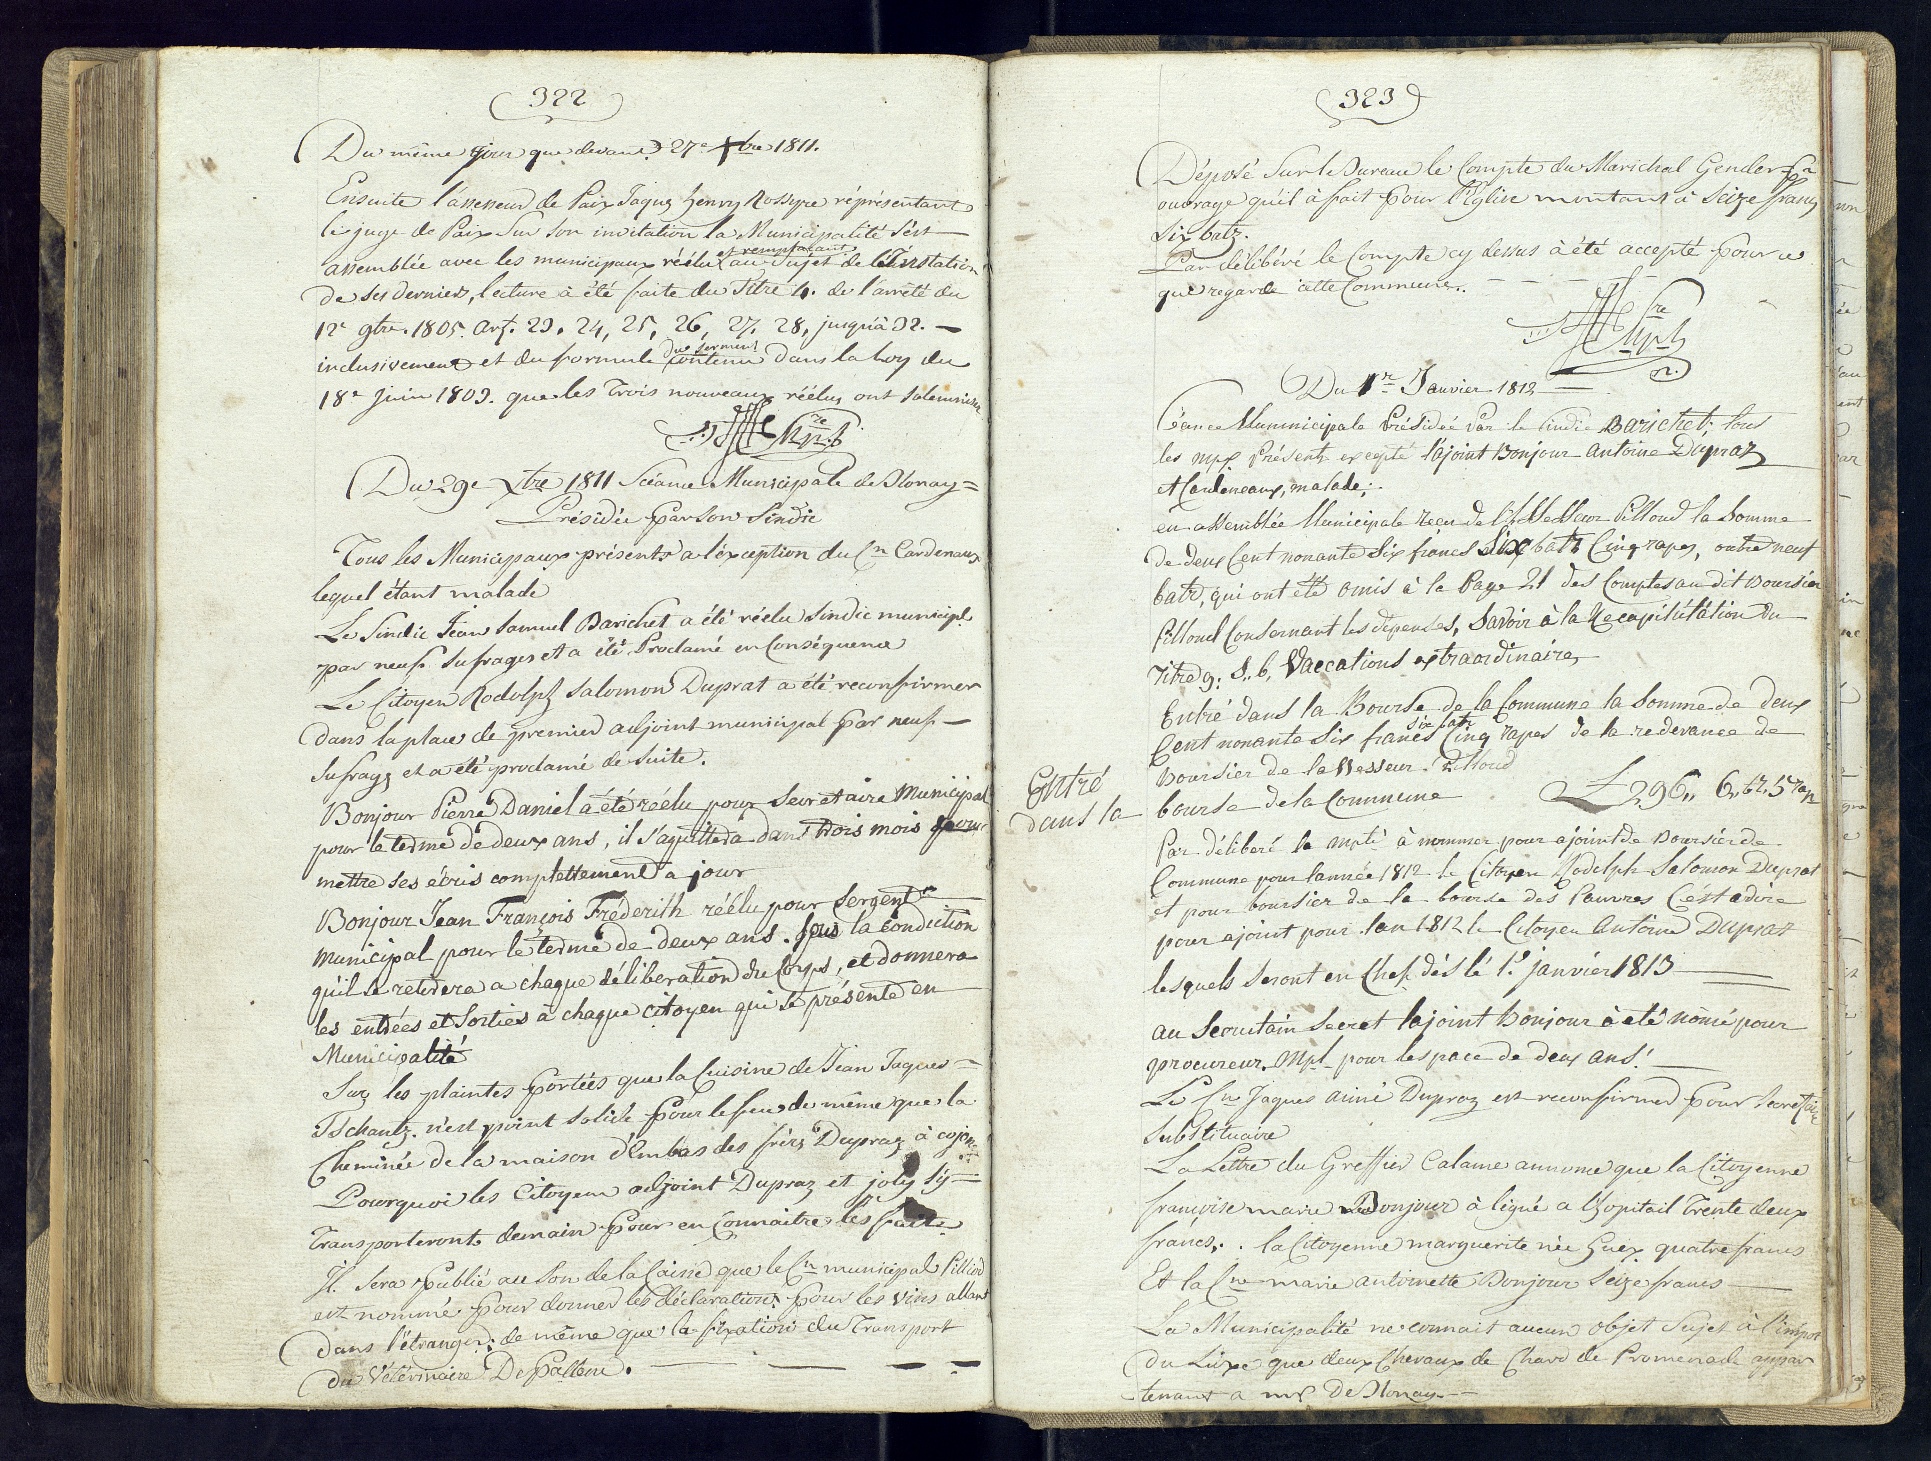 322
Du même jour que devant 27e Xbre 1811.
Ensuite l'assesseur de Paix Jaques Henry Rossyre réprésentant
le juge de Paix Sur Son invitation la Municipalité s'est
assemblée avec les municipaux réélu et remplacant au Sujet de l'Instalation
de Ses dernier, lecture à été faite du Titre 4. de l'arrêté du
12e 9bre. 1805. Art. 23. 24, 25, 26, 27. 28, jusqu'à 32. —
inclusivement et du formule du serment contenu dans la Loy du
18e Juin 1803. que les Trois nouveaux réélus ont Solemnisé
Du 29e Xbre 1811 Séance Municipale de Blonay =
Présidée par Son Sindic
Tous les Municipaux présents a l'éxception du Cn Cardenaux
lequel étant malade
Le Sindic Jean Samuel Barichet a été réélu Sindic municipl
par neuf Sufrages et a été Proclamé en Conséquence
Le Citoyen Rodolph Salomon Duprat a été reconfirmer
dans la place de premier adjoint municipal par neuf —
Sufrags et a été proclamé de Suite.
Bonjour Pierre Daniel a été réélu pour Secretaire Municipal
pour le terme de deux ans, il s'aquittera dans trois mois pour
mettre Ses écris complettement a jour
Bonjour Jean François Fréderith réélu pour Sergent
Municipal pour le terme de deux ans. Sous la condiction
qu'il se retirera a chaque déliberation du Corps, et donnera
les entrées et Sorties à chaque citoyen qui se présente en
Municipalité
Sur les plaintes portées que la Cuisine de Jean Jaques =
Tschantz. n'est point Solide pour le feu de même que la
Cheminée de la maison d'Embas des frères Dupraz à cojon
Pourquoi les Citoyens adjoint Dupraz et joly s'y —
Transporteront demain pour en Connaitre les faits
Il Sera Publié au Son de la Caisse que le Cn municipal Pilliod
est nommé pour donner les déclarations pour les vins allant
dans l'étranger: de même que la fixation du Transport
du Vétérinaire DePallens. — — — —
323
Déposé Sur le Bureau le Compte du Maréchal Gender pr
ouvrage qu'il à fait pour l'Eglise montant à Seize francs
Six batz.
Par délibéré le Compte cy dessus à été accepté pour ce
que regarde cette Commune. —
Du 1er Janvier 1812 —
Céance Munnicipale Présidée Par le Sindic Barichet, tous
les mpx Présents excepté l'ajoint Bonjour Antoine Dupraz
et Cardeneaux, malade;.
en assemblée Municipale reçu de l'Assesseur Pilloud la Somme
de deux Cent nonante Six francs Six batz Cinq rapes, outre neuf
batz, qui ont été omis à la Page 21 des Comptes au dit Boursier
Pilloud Consernant les dépenses, Savoir à la Recapitulation du
Titre 9: S. 6, Vaccations extraordinaires
Entré dans la Bourse de la Commune la Somme de deux
Cent nonante Six francs six batz Cinq rapes de la redevance de
Boursier de lassesseur Pilloud
Entré
dans la
bourse de la Commune £ 296,, 6,, bz, 5 rap
Par déliberé la mpté à nommer pour ajoint de Boursier de
Commune pour lannée 1812 le Citoyen Rodolph Salomon Duprat
et pour boursier de la bourse des Pauvres C'est adire
pour ajoint pour lan 1812 le Citoyen Antoine Dupraz
lesquels Seront en Chef dés le 1er janvier 1813 —
au Scrutain Secret lajoint Bonjour à eté nomé pour
procureur. Mpl pour lespace de deux ans! —
Le Cn Jaques aimé Dupraz est reconfirmer pour Secretaire
Substituaire
La Lettre du Greffier Calame annonce que la Citoyenne
francoise marie Bonjour à légué a lhopitail Trente deux
francs,. la Citoyenne marguerite née Guex quatre francs
Et la Cne marie antoinette Bonjour Seize francs —
La Municipalité ne connait aucun objet Sujet à l'impot
du Luxe que deux Chevaux de Chard de Promenade appar
tenant a mr De Blonay. —